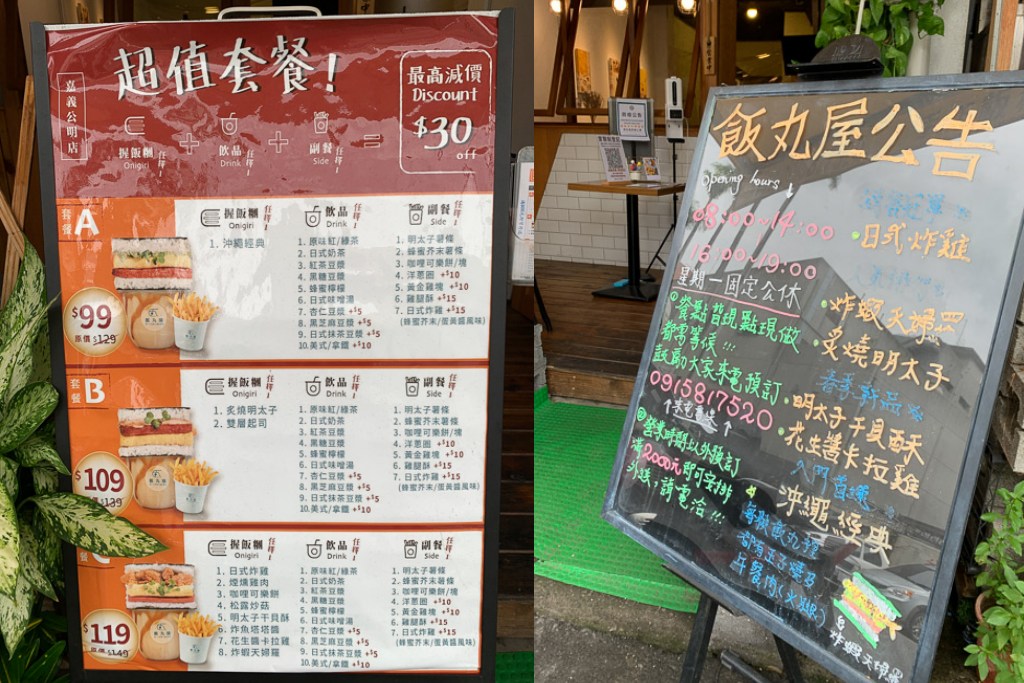 超值套餐!
嘉義公明店
握飯糰 任擇1
Onigiri
+
飲品 任擇1
Drink
+
副餐 任擇1
Side
=
最高減價
Discount
$30
off
套餐A
$99
原價 $129
握飯糰 任擇1
Onigiri
1. 沖繩經典
飲品 任擇1
Drink
1. 原味紅/綠茶
2. 日式奶茶
3. 紅茶豆漿
4. 黑糖豆漿
5. 蜂蜜檸檬
6. 日式味噌湯
7. 杏仁豆漿 +5
8. 黑芝麻豆漿 +5
9. 日式抹茶豆漿 +5
10. 美式/拿鐵 +10
副餐 任擇1
Side
1. 明太子薯條
2. 蜂蜜芥末薯條
3. 咖哩可樂餅/塊
4. 洋蔥圈 +10
5. 黃金雞塊 +10
6. 雞腿酥 +15
7. 日式炸雞 +15
(蜂蜜芥末/蛋黃醬風味)
套餐B
$109
原價 $139
握飯糰 任擇1
Onigiri
1. 炙燒明太子
2. 雙層起司
飲品 任擇1
Drink
1. 原味紅/綠茶
2. 日式奶茶
3. 紅茶豆漿
4. 黑糖豆漿
5. 蜂蜜檸檬
6. 日式味噌湯
7. 杏仁豆漿 +5
8. 黑芝麻豆漿 +5
9. 日式抹茶豆漿 +5
10. 美式/拿鐵 +10
副餐 任擇1
Side
1. 明太子薯條
2. 蜂蜜芥末薯條
3. 咖哩可樂餅/塊
4. 洋蔥圈 +10
5. 黃金雞塊 +10
6. 雞腿酥 +15
7. 日式炸雞 +15
(蜂蜜芥末/蛋黃醬風味)
$119
原價 $149
握飯糰 任擇1
Onigiri
1. 日式炸雞
2. 煙燻雞肉
3. 咖哩可樂餅
4. 松露炒菇
5. 明太子干貝酥
6. 炸魚塔塔醬
7. 花生醬卡拉雞
8. 炸蝦天婦羅
飲品 任擇1
Drink
1. 原味紅/綠茶
2. 日式奶茶
3. 紅茶豆漿
4. 黑糖豆漿
5. 蜂蜜檸檬
6. 日式味噌湯
7. 杏仁豆漿 +5
8. 黑芝麻豆漿 +5
9. 日式抹茶豆漿 +5
10. 美式/拿鐵 +10
副餐 任擇1
Side
1. 明太子薯條
2. 蜂蜜芥末薯條
3. 咖哩可樂餅/塊
4. 洋蔥圈 +10
5. 黃金雞塊 +10
6. 雞腿酥 +15
7. 日式炸雞 +15
(蜂蜜芥末/蛋黃醬風味)
飯丸屋公告
opening hours
08:00~14:00
16:00~19:00
星期一固定公休
①餐點皆現點現做
都需等候!!!
鼓勵大家來電預訂
0915817520
↑來電專線↑
②營業時間以外預訂
滿2000元即可安排
外送,請電洽!!!
日式炸雞
炸蝦天婦羅
炙燒明太子
春季新品
明太子干貝酥
花生醬卡拉雞
入門首選
沖繩經典
每款飯丸裡
都有玉子燒及
午餐肉(火腿)
炸蝦天婦羅